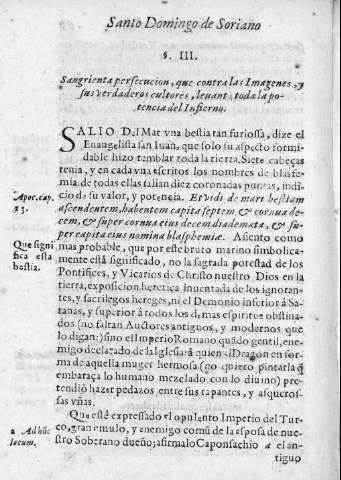 Santo Domingo de Soriano
§. III.
Sangrienta persecucion, que contra las Imagenes, y
sus verdaderos cultores, levantò toda la po-
tencia del Infierno.
SALIO Del Mar vna bestia tan furiossa, dize el
Euuangelista san Iuan, que solo su aspecto formi-
dable hizo temblar toda la tierra. Siete cabeças
tenia, y en cada vna escritos los nombres de blasfe-
mia. de todas ellas salian diez coronadas puntas, indi-
cio de su valor, y potencia. Et vidi de mari bestiam
Apoc. cap.
13.
ascendentem, habentem capita septem & cornua de-
cem, & super cornua eius decem diademata, & su-
per capita eius nomina blasphemiæ. Asiento como
mas probable, que por este bruto marino simbolica-
Que signi
fica esta
bestia.
mente està significado, no la sagrada potestad de los
Pontifices, y Vicarios de Christo nuestro Dios en la
tierra, exposicion heretica inuentada de los ignoran-
tes, y sacrilegos hereges, ni el Demonio inferior à Sa-
tanas, y superior à todos los demas espiritus obstina-
dos (no faltan Auctores antiguos, y modernos que
lo digan:) sino el Imperio Romano quãdo gentil, ene-
migo declarado de la Iglesia à quien el Dragon en for-
ma de aquella muger hermosa (no quiero pintarla q̃
embaraça lo humano mezclado con lo diuino) pre-
tendiò hazer pedazos entre sus rapantes, y asquero-
sas vñas.
Que està expressado el opulento Imperio del Tur-
a Ad hũc
locum.
co, gran emulo, y enemigo comũ de la esposa de nue-
stro Soberano dueño; afirmalo Caponsachio a el an-
tiguo